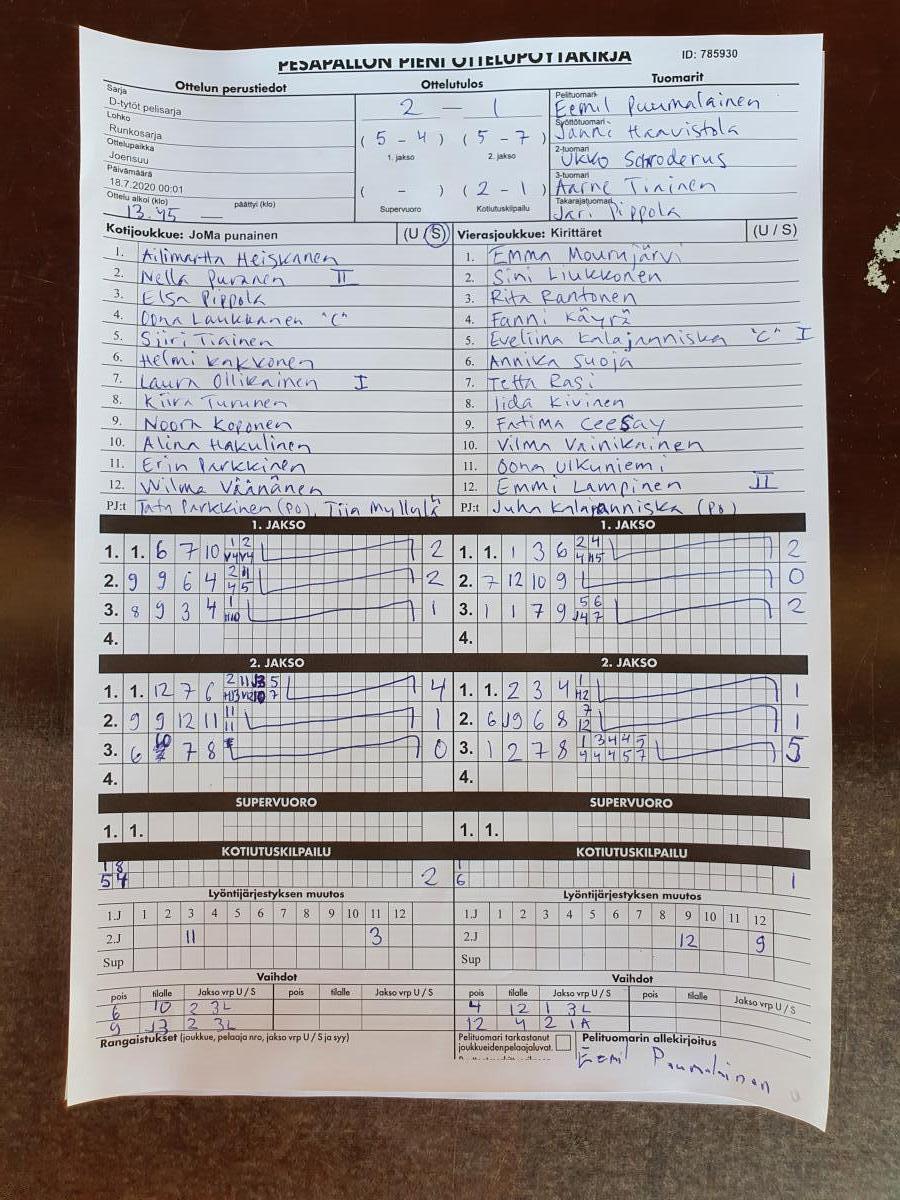 PESÄPALLON PIENI OTTELUPÖYTÄKIRJA ID: 785930
Ottelun perustiedot Ottelutulos Tuomarit
Sarja
D-tytöt pelisarja
Lohko
Runkosarja
Ottelupaikka
Joensuu
Päivämäärä
18.7.2020 00:01
Ottelu alkoi (klo) päättyi (klo)
13.45
2 — 1
( 5 - 4 ) ( 5 - 7 )
1. jakso 2. jakso
( - ) ( 2 - 1 )
Supervuoro Kotiutuskilpailu
Pelituomari
Eemil Puumalainen
Syöttötuomari
Janne Haavistola
2-tuomari
Ukko Schroderus
3-tuomari
Aarne Tiainen
Takarajatuomari
Jari Pippola
Kotijoukkue: JoMa punainen (U / S) Vierasjoukkue: Kirittäret (U / S)
1. Ailimartta Heiskanen 1. Emma Mourujärvi
2. Nella Puranen II 2. Sini Liukkonen
3. Elsa Pippola 3. Rita Rantonen
4. Oona Laukkanen "C" 4. Fanni Käyrä
5. Siiri Tiainen 5. Eveliina Kalajanniska "C" I
6. Helmi Kakkonen 6. Annika Suoja
7. Laura Ollikainen I 7. Tetta Rasi
8. Kiira Turunen 8. Iida Kivinen
9. Noora Koponen 9. Fatima Ceesay
10. Alina Hakulinen 10. Vilma Vainikainen
11. Erin Parkkinen 11. Oona Ulkuniemi
12. Wilma Väänänen 12. Emmi Lampinen II
PJ:t Tatu Parkkinen (PO), Tiia Myllylä PJ:t Juha Kalajanniska (PO)
1. JAKSO 1. JAKSO
1. 1. 6 7 10 2 1. 1. 1 3 6 2
2. 9 9 6 4 2 2. 7 12 10 9 0
3. 8 9 3 4 1 3. 1 1 7 9 2
4. 4.
2. JAKSO 2. JAKSO
1. 1. 12 7 6 4 1. 1. 2 3 4 1
2. 9 9 12 11 1 2. 6 9 6 8 1
3. 6 7 8 0 3. 1 2 7 8 5
4. 4.
SUPERVUORO SUPERVUORO
1. 1. 1. 1.
KOTIUTUSKILPAILU KOTIUTUSKILPAILU
1 8 1
5 4 2 6 1
Lyöntijärjestyksen muutos Lyöntijärjestyksen muutos
1.J 1 2 3 4 5 6 7 8 9 10 11 12 1.J 1 2 3 4 5 6 7 8 9 10 11 12
2.J 11 3 2.J 12 9
Sup Sup
Vaihdot Vaihdot
pois tilalle Jakso vrp U / S pois tilalle Jakso vrp U / S pois tilalle Jakso vrp U / S pois tilalle Jakso vrp U / S
6 10 2 3L 4 12 1 3L
9 13 2 3L 12 4 2 1A
Rangaistukset (joukkue, pelaaja nro, jakso vrp U / S ja syy) Pelituomari tarkastanut joukkueiden pelaajaluvat. Pelituomarin allekirjoitus
Eemil Puumalainen